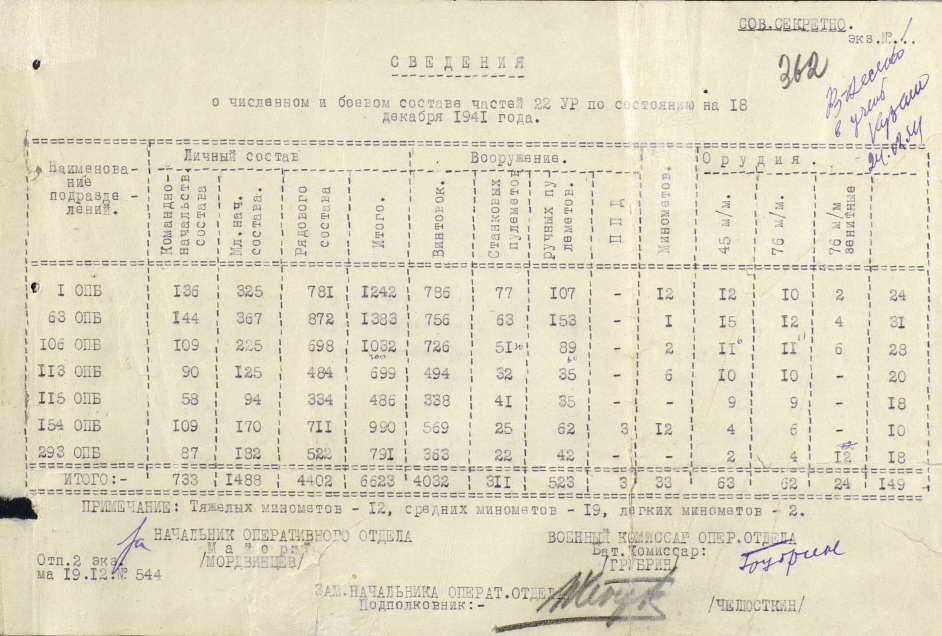 СОВ.СЕКРЕТНО.
экз.№...
362
СВЕДЕНИЯ
о численном и боевом составе частей 22 УР по состоянию на 18
декабря 1941 года.
Наименова-
ние
подразде -
лений.
Личный состав
Вооружение.
Орудия.
Командно-
начальств
состава
Мл.нач.
состава.
Рядового
состава
Итого.
Винтовок.
Станковых
пулеметов
ручных пу
леметов.
ППД
Минометов.
45 м/м.
76 м/м.
76 м/м
зенитные
1 ОПБ 136 325 781 1242 786 77 107 - 12 12 10 2 24
63 ОПБ 144 367 872 1383 756 63 153 - 1 15 12 4 31
106 ОПБ 109 225 698 1032 726 51 89 - 2 11 11 6 28
113 ОПБ 90 125 484 699 494 32 35 - 6 10 10 - 20
115 ОПБ 58 94 334 486 338 41 35 - - 9 9 - 18
154 ОПБ 109 170 711 990 569 25 62 3 12 4 6 - 10
293 ОПБ 87 182 522 791 363 22 42 - - 2 4 12 18
ИТОГО:- 733 1488 4402 6623 4032 311 523 3 33 63 62 24 149
ПРИМЕЧАНИЕ: Тяжелых минометов - 12, средних минометов - 19, легких минометов - 2.
НАЧАЛЬНИК ОПЕРАТИВНОГО ОТДЕЛА
Майор:
/МОРДВИНЦЕВ/
ВОЕННЫЙ КОМИССАР ОПЕР.ОТДЕЛА
Бат.Комиссар:
/ГРУБРИН/
Отп.2 экз.
ма 19.12.№ 544
ЗАМ.НАЧАЛЬНИКА ОПЕРАТ.ОТДЕЛА
Подполковник:-
/ЧЕЛЮСТКИН/